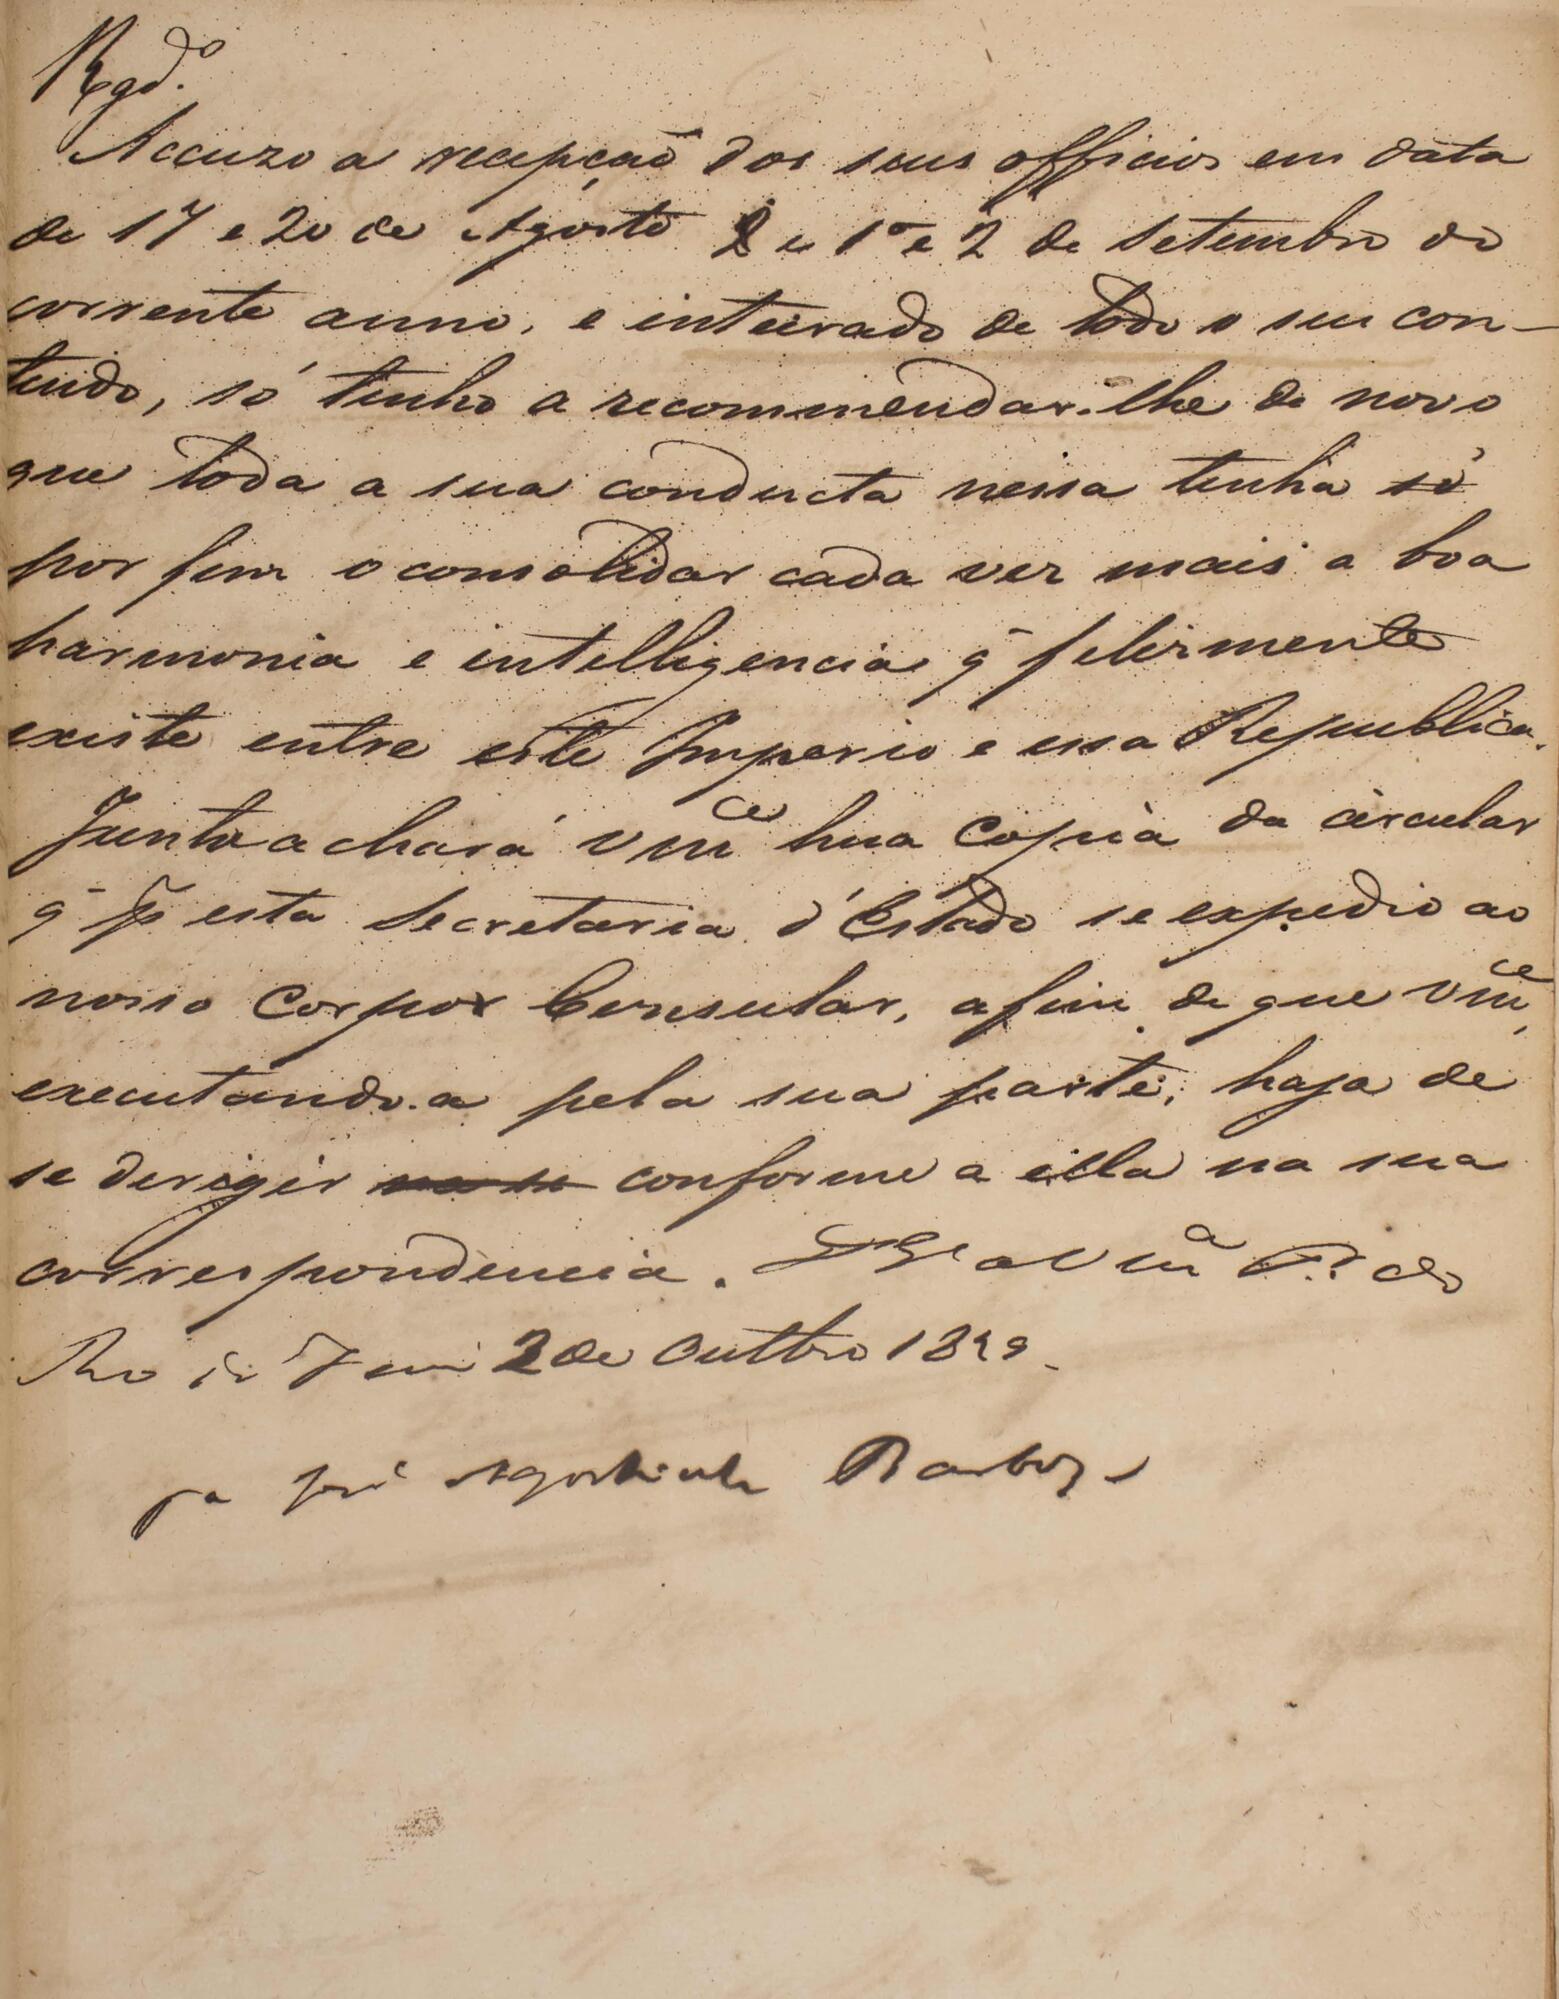 Regd.o
Accuzo a recepção dos seus officios em data
de 17 e 20 de Agosto e 1º e 2 de setembro do
corrente anno, e inteirado de todo o seu con-
teudo, só tenho a recommendar-lhe de novo
que toda a sua conducta nessa tenha só
por fim o consolidar cada vez mais a boa
harmonia e intelligencia q̃ felizmente
existe entre este Imperio e essa Republica.
Junto achará Vm.ce hua Copia da circular
q̃ p esta Secretaria d'Estado se expedio ao
nosso Corpo Consular, afim de que Vm.ce
executando-a pela sua parte, haja de
se derigir conforme a ella na sua
correspondencia. D.s G.e a Vm.ce P.
Rio de Janr 2 de Outbro 1829.
pa José Agostinho Barboza